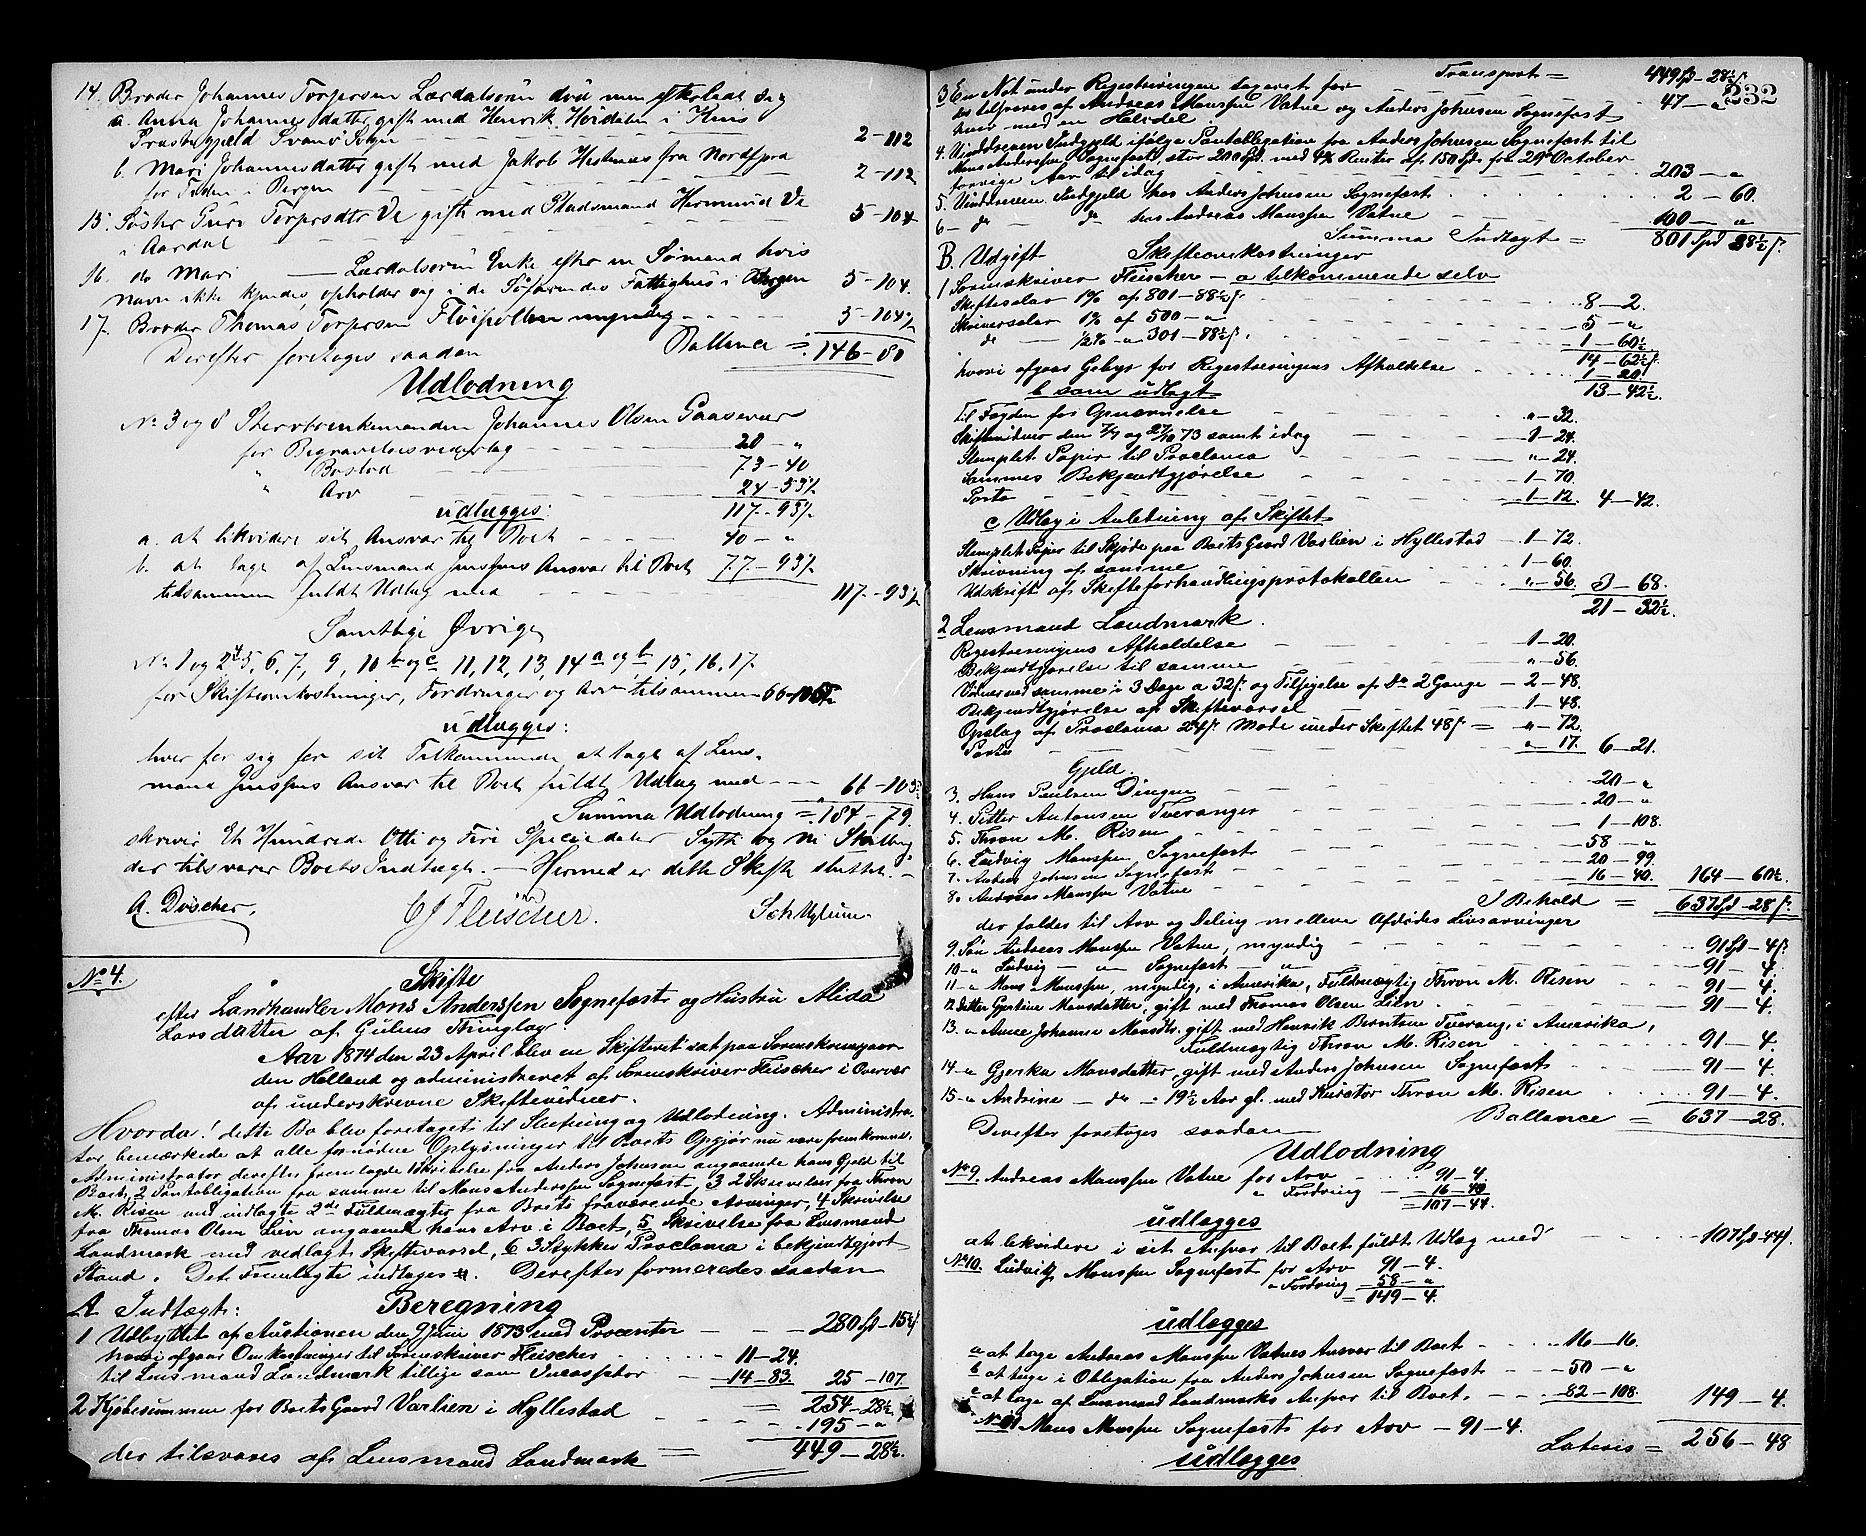 14. Broder Johannes Torgersen Lærdalsøren død men efterladt sig
a. Anna Johannesdatter, gift med Henrik Høidalen i Kins
Præstegjeld Svanø Sogn 2-112
b. Mari Johannesdatter gift med Jakob fra Nordfjord
for Tiden i Bergen 2-112
15. Søster Guri Torgersdtr Ve gift med Pladsmand Hermund Ve
i Aardal 5-104
16. do Mari — Lærdalsøren Enke efter en Sømand hvis
navn ikke kjendes, opholder sig i de Søfarendes Fattighus i Bergen 5-104.
17. Broder Thomas Torgersen myndig 5-104½
Derefter foretoges saadan Ballance = 146-80
Udlodning
No 3 og 8 Stervboenkemanden Johannes Olsen Gaasevær
for Begravelsesvederlag 20-"
" Boslod 73-40
" Arv 24-53½
udlægges: 117-93½
a. at likvidere sit Ansvar til Boet 40-"
b. at tage af Lensmand Jensens Ansvar til Boet 77-93½
tilsammen fuldt Udlæg med 117-93½
Samtlige Øvrige
No 1 og 2, 5, 6, 7, 9, 10 b og c 11, 12, 13, 14 a og b 15, 16, 17.
for Skifteomkostninger, Fordringer og Arv tilsammen 66-105½
udlægges:
hver for sig for sit Tilkommende at tage af Lens-
mand Jensens Ansvar til Boet fuldt Udlæg med 66-105½
Summa Udlodning = 184-79.
skriver Et Hundrede Otti og Fire Speciedaler Sytti og Ni Skilling
der tilsvarer Boets Indtægt. — Hermed er dette Skifte sluttet. —
A. Drischer. CJ Fleischer.
No 4. Skifte
efter Landhandler Mons Anderssen Sognefæst og Hustru Alida
Larsdatter af Gulens Thinglag
Aar 1874 den 23 April blev en Skifteret sat paa Sorenskrivergaar-
den Holland og administreret af Sorenskriver Fleischer i Overvær
af underskrevne Skiftevidner.
Hvorda! dette Bo blev foretaget til Slutning og Udlodning. Administra-
tor bemærkede at alle fornødne Oplysninger til Boets Opgjør nu vare fremkomne.
Administrator derefter fremlagde 1 Skrivelse fra Anders Johnsen angaaende hans Gjeld til
Boet, 2 Pantobligation fra samme til Mons Anderssen Sognefæst, 3 2 Skrivelser fra Thron
M. Risen med indlagte 2de Fuldmagter fra Boets fraværende Arvinger, 4 Skrivelse
fra Thomas Olsen Lien angaaende hans Arv i Boet, 5 Skrivelse fra Lensmand
Landmark med vedlagt Skiftevarsel, 6 3 Stykker Proclama i bekjendtgjort
Stand. Det Fremlagte indtages. Derefter formeredes saadan
A Indtægt: Beregning
1 Udbyttet af Auctionen den 9 Juni 1873 med Procenter 280 Sp-15½ s.
hvori afgaar Omkostninger til Sorenskriver Fleischer 11-24.
til Lensmand Landmark tillige som Incassator 14-83 25-107
254-28½
2 Kjøbesummen for Boets Gaard Varlien i Hyllestad 195-"
der tilsvares af Lensmand Landmark = 449-28½.
232
Transport = 449 Sp-28½ s.
3 En Not under Registreringen taxeret for 47-"
tilsvares af Andreas Monssen Vatne og Anders Johnsen Sognefæst
hver med en Halvdel
4. Uinddreven Indgjeld ifølge Pantobligation fra Anders Johnsen Sognefæst til
Mons Anderssen Sognefæst, stor 200 Spd. med 4% Renter af 150 Spd. fra 24 October
forrige Aar til idag 203-"
5. Uinddreven Indgjeld hos Anders Johnsen Sognefæst 2-60.
6 — do do hos Andreas Monssen Vatne 100-"
Summa Indtægt = 801 Spd 88½ s.
B. Udgift Skifteomkostninger
1 Sorenskriver Fleischer — a tilkommende selv
Skiftesalær 1% af 801-88½ s. 8-2.
Skriversalær 1% af 500-" 5-"
do ½% " 301-88½ s. 1-60½
14-62½ s.
hvori afgaar Gebyr for Registreringens Afholdelse 1-20
13-42½
b som udlagt
Til Fogden for Opnævnelse "-32.
Skiftevidner den 7/7 og 27/10 73 samt idag 1-24.
Stemplet Papir til Proclama "-24.
Sammes Bekjendtgjørelse 1-70.
Porto 1-12. 4-42.
c Udlæg i Anledning af Skiftet
Stemplet Papir til Skjøde paa Boets Gaard Varlien i Hyllestad 1-72.
Skrivning af samme 1-60.
Udskrift af Skifteforhandlingsprotokollen "-56. 3-68.
21-32½.
2 Lensmand Landmark.
Registreringens Afholdelse 1-20.
Bekjendtgjørelse til samme "-56.
Vidner ved samme i 3 Dage a 32 s. og Tilsigelse af Do 2 Gange 2-48.
Bekjendtgjørelse af Skiftevarsel 1-48.
Opslag af Proclama 24 s. Møde under Skiftet 48 s = "-72.
Porto "-17. 6-21.
Gjeld.
3. Hans Poulsen Dingen 20-"
4. Petter Antonsen Tveranger 20-"
5. Thron M. Risen 1-108.
6. Ludvig Monssen Sognefæst 58-"
7. Anders Johnsen Sognefæst 20-99.
8. Andreas Monssen Vatne 16-40. 164-60½.
I Behold = 637 Spd-28 s.
der faldes til Arv og Deling mellem Afdødes Livsarvinger
9. Søn Andreas Monssen Vatne, myndig 91 Sp-4 s.
10 " Ludvig — " Sognefæst " 91-4.
11 " Mons Monssen, myndig, i Amerika, Fuldmægtig Thron M. Risen 91-4.
12 Datter Gjertine Monsdatter, gift med Thomas Olsen Lien 91-4.
13. " Anne Johanne Monsdtr. gift med Henrik Berntsen Tverang, i Amerika,
Fuldmægtig Thron M. Risen 91-4.
14 " Gjerska Monsdatter, gift med Anders Johnsen Sognefæst 91-4.
15 " Andrine — do — 19½ Aar gl. med Kurator Thron M. Risen 91-4.
Derefter foretoges saadan Ballance = 637-28.
Udlodning
No 9. Andreas Monssen Vatne for Arv 91-4
" Fordring 16-40
= 107-44.
udlægges
at likvidere i sit Ansvar til Boet fuldt Udlæg med 107 Sp-44 s.
No 10. Ludvig Monssen Sognefæst for Arv 91-4.
" Fordring 58-"
= 149-4.
udlægges
a at tage Andreas Monssen Vatnes Ansvar til Boet 16-16.
b at tage i Obligation fra Anders Johnsen Sognefæst 50-"
c at tage af Lensmand Landmarks Ansvar til Boet. 82-108. 149-4.
No 11 Mons Monssen Sognefæst for Arv — 91-4.
Lateris = 256-48
udlægges